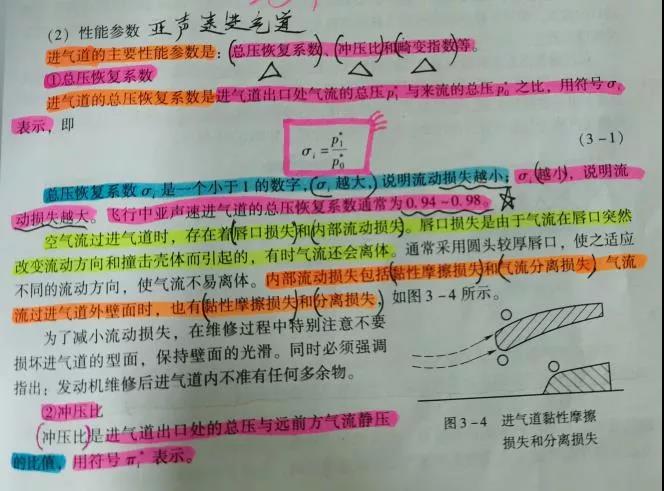 (2) 性能参数 亚声速进气道
进气道的主要性能参数是：(总压恢复系数)、(冲压比)和(畸变指数)等。
①总压恢复系数
进气道的总压恢复系数是进气道出口处气流的总压 p₁* 与来流的总压 p₀* 之比，用符号 σᵢ
表示，即
σᵢ = p₁*/p₀*
(3-1)
总压恢复系数 σᵢ 是一个小于 1 的数字，(σᵢ 越大，)说明流动损失越小；σᵢ(越小)，说明流
动损失越大。飞行中亚声速进气道的总压恢复系数通常为 0.94~0.98。
空气流过进气道时，存在着(唇口损失)和(内部流动损失)。唇口损失是由于气流在唇口突然
改变流动方向和撞击壳体而引起的，有时气流还会离体。通常采用圆头较厚唇口，使之适应
不同的流动方向，使气流不易离体。内部流动损失包括(黏性摩擦损失)和(气流分离损失)。气流
流过进气道外壁面时，也有(黏性摩擦损失)和(分离损失)，如图 3-4 所示。
为了减小流动损失，在维修过程中特别注意不要
损坏进气道的型面，保持壁面的光滑。同时必须强调
指出：发动机维修后进气道内不准有任何多余物。
②冲压比
(冲压比)是进气道出口处的总压与远前方气流静压
的比值，用符号 πᵢ* 表示。
图 3-4 进气道黏性摩擦
损失和分离损失